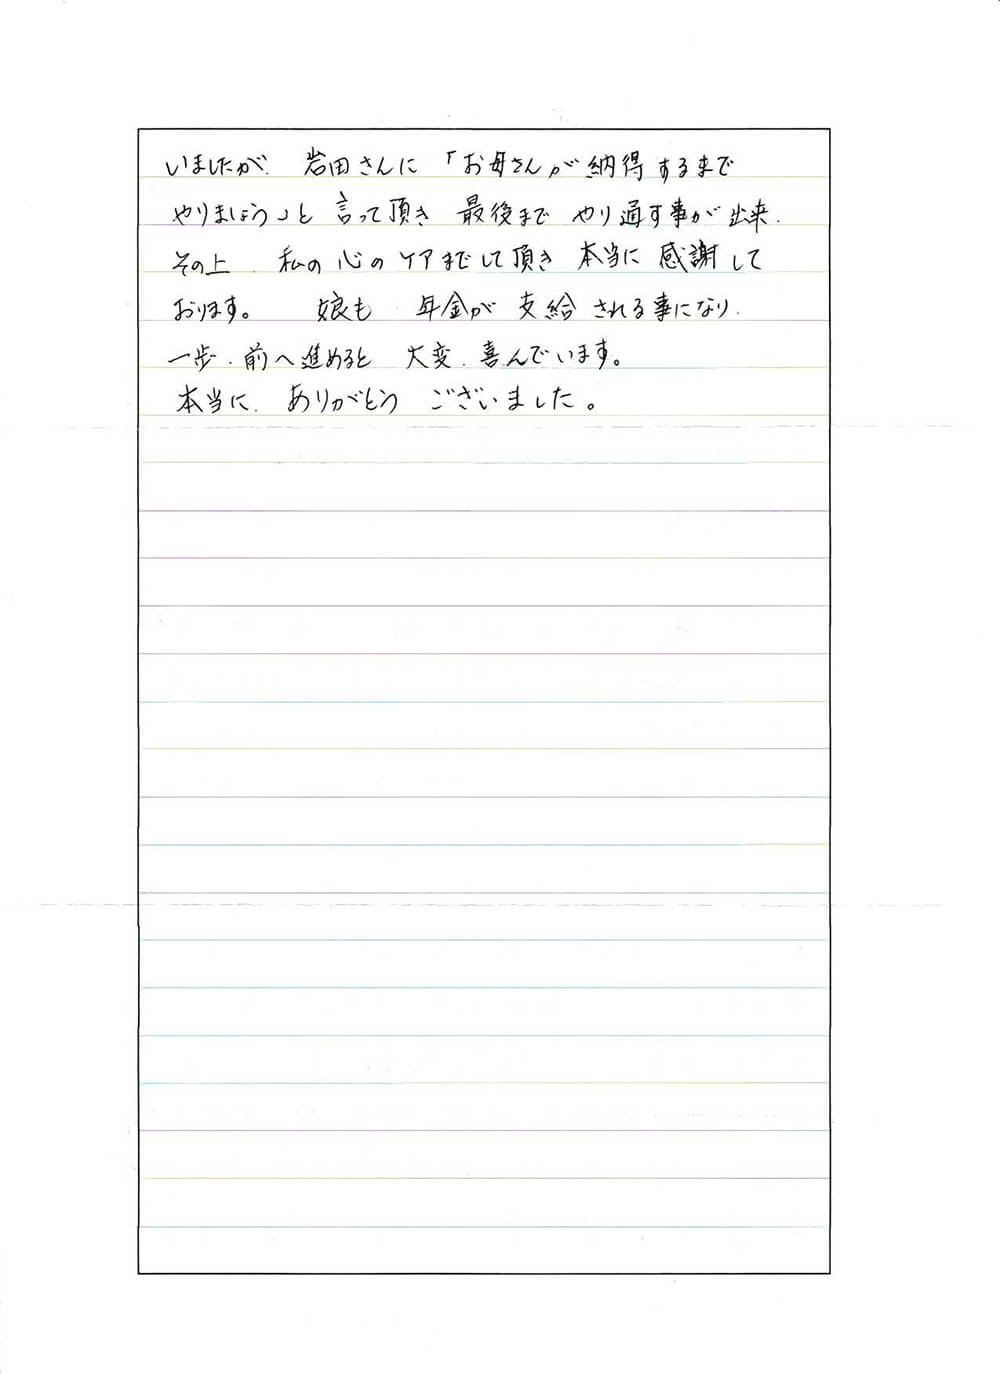 いましたが、岩田さんに「お母さんが納得するまで
やりましょう」と言って頂き 最後まで やり通す事が出来、
その上、私の心のケアまでして頂き 本当に感謝して
おります。 娘も、年金が支給される事になり、
一歩、前へ進めると 大変、喜んでいます。
本当に、ありがとう ございました。